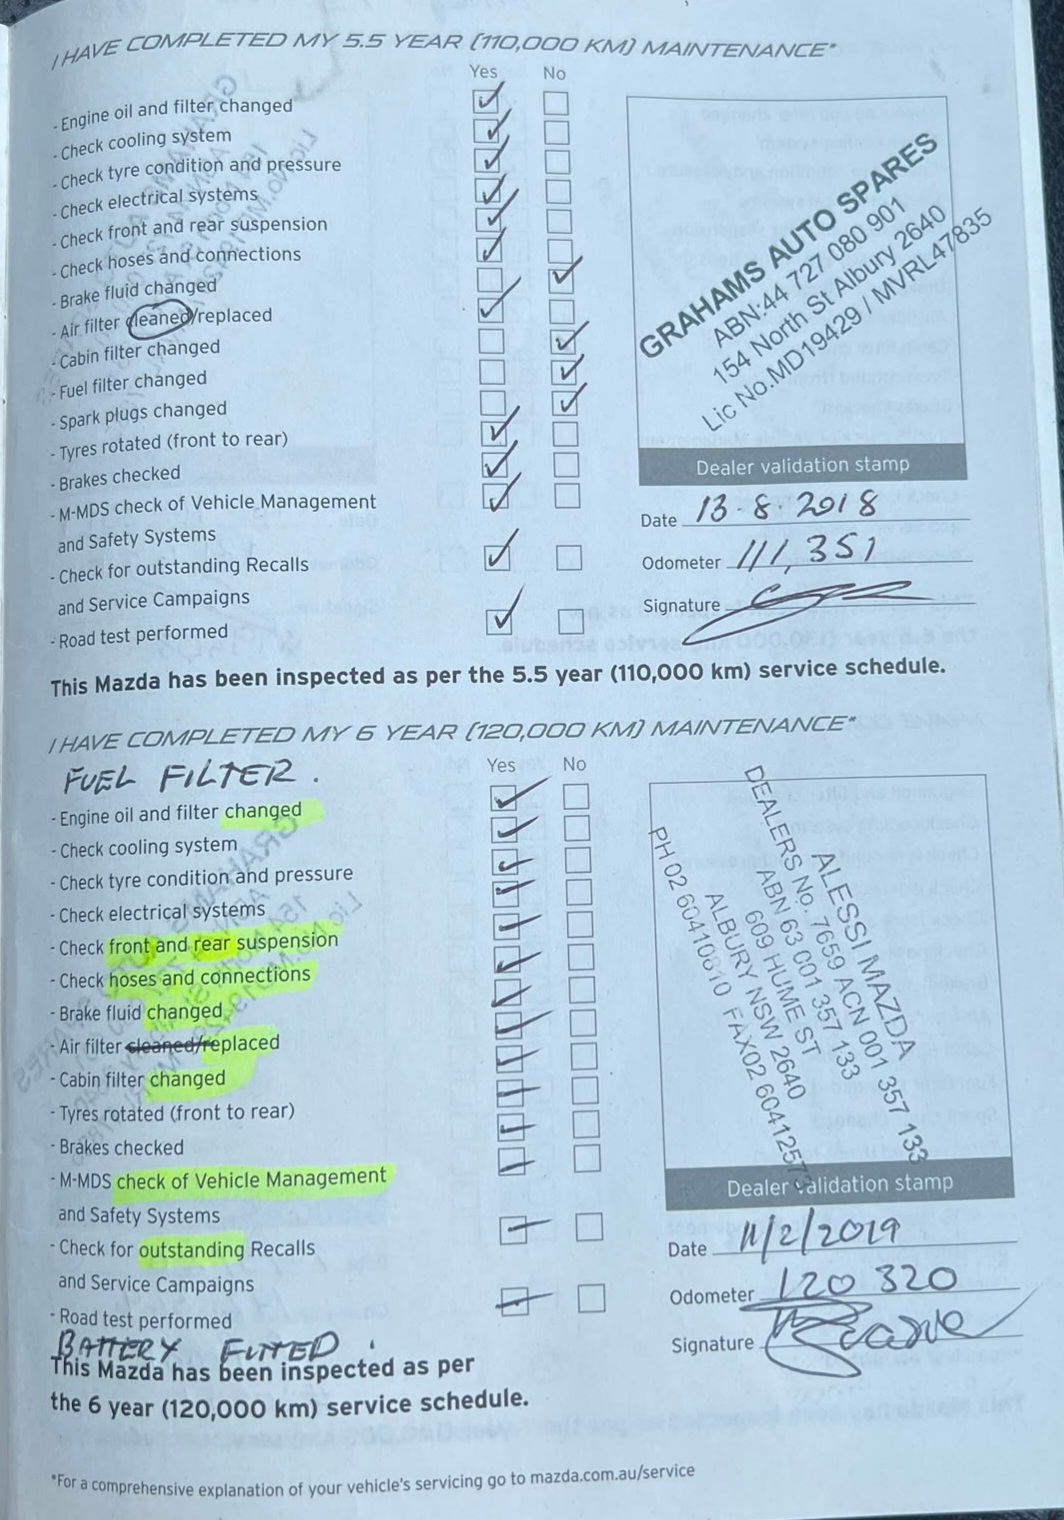 I HAVE COMPLETED MY 5.5 YEAR (110,000 KM) MAINTENANCE*
Yes No
- Engine oil and filter changed
- Check cooling system
- Check tyre condition and pressure
- Check electrical systems
- Check front and rear suspension
- Check hoses and connections
- Brake fluid changed
- Air filter cleaned/replaced
- Cabin filter changed
- Fuel filter changed
- Spark plugs changed
- Tyres rotated (front to rear)
- Brakes checked
- M-MDS check of Vehicle Management
and Safety Systems
- Check for outstanding Recalls
and Service Campaigns
- Road test performed
GRAHAMS AUTO SPARES
ABN:44 727 080 901
154 North St Albury 2640
Lic No.MD19429 / MVRL47835
Dealer validation stamp
Date 13.8.2018
Odometer 111,351
Signature
This Mazda has been inspected as per the 5.5 year (110,000 km) service schedule.
I HAVE COMPLETED MY 6 YEAR (120,000 KM) MAINTENANCE*
FUEL FILTER.
Yes No
- Engine oil and filter changed
- Check cooling system
- Check tyre condition and pressure
- Check electrical systems
- Check front and rear suspension
- Check hoses and connections
- Brake fluid changed
- Air filter cleaned/replaced
- Cabin filter changed
- Tyres rotated (front to rear)
- Brakes checked
- M-MDS check of Vehicle Management
and Safety Systems
- Check for outstanding Recalls
and Service Campaigns
- Road test performed
BATTERY FITTED.
ALESSI MAZDA
DEALERS No. 7659 ACN 001 357 133
ABN 63 001 357 133
609 HUME ST
ALBURY NSW 2640
PH 02 60410810 FAX02 6041257
Dealer validation stamp
Date 11/2/2019
Odometer 120 320
Signature
This Mazda has been inspected as per
the 6 year (120,000 km) service schedule.
*For a comprehensive explanation of your vehicle's servicing go to mazda.com.au/service